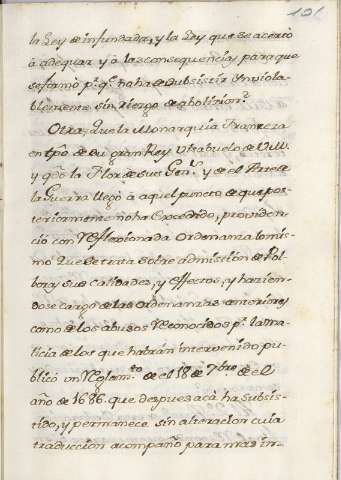 101
la Ley de infundada, y la Ley que se acertó
à adequar y à las consequencias para que
se formó p.r q.e haha de subsistir Inviola-
blemente sin riesgo de abolicion.
Otra, que la Monarquia Franzesa
en tpõ de su gran Rey Visabuelo de V. M.
y q.do la Flor de sus Gen.s y de el Arte de
la Guerra llegó à aquel puncto de que pos-
tericamente no ha Excedido, providen-
ció con Reflexionada Ordenanza lo mis-
mo que se trata sobre admission de Pol-
bora y sus Calidades, y effectos, y hazien-
dose cargo de las ordenanzas anteriores
como de los abusos Reconocidos p.r la ma-
licia de los que habrán intervenido pu-
blicó un Reglam.to de el 18 de 7bre de el
año de 1686. que despues acà ha subsis-
tido, y permanece sin alteracion cuia
traduccion acompaño para mas in-